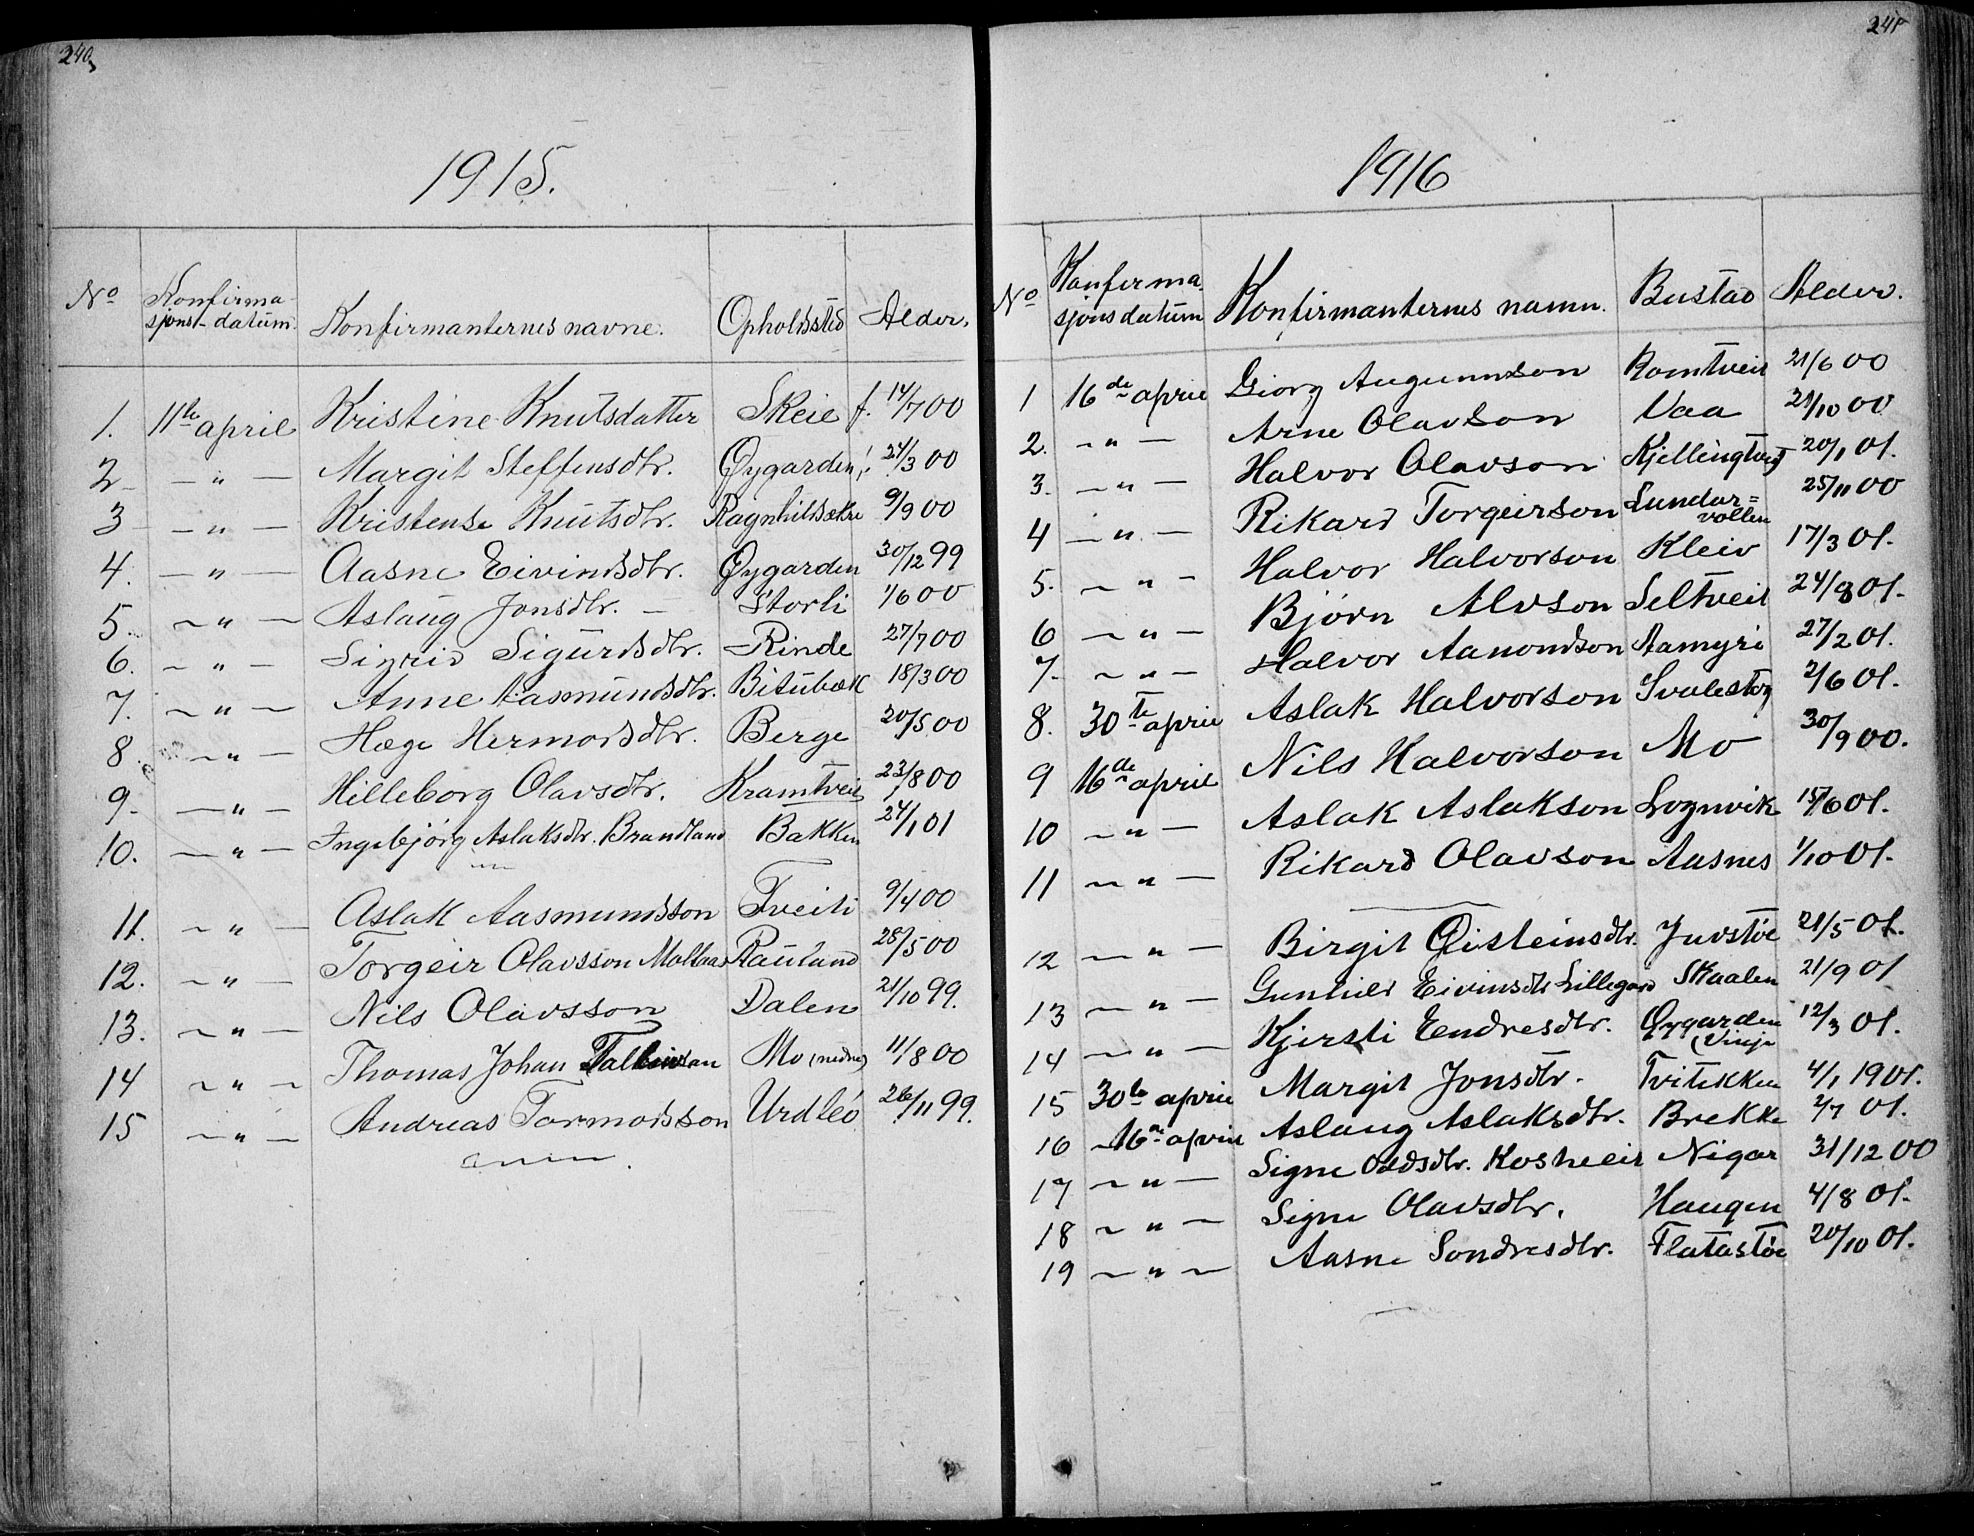 240
1915.
No Konfirma-
sjons-datum. Konfirmanternes navne. Opholdssted Alder.
1. 11te april Kristine Knutsdatter Skeie f. 14/7 00
2 — " — Margit Steffensdtr. Øygarden 24/3 00
3 — " — Kristense Knutsdtr. Ragnhildsækre 9/9 00
4. — " — Aasne Eivindsdtr. Øygarden 30/12 99
5. — " — Aslaug Jonsdtr. — Storli 1/6 00
6. — " — Sigrid Sigurdsdtr. Rinde 27/7 00
7. — " — Anne Aasmundsdtr. Bitubæk 18/3 00
8 — " — Hæge Hermodsdtr. Berge 20/5 00
9. — " — Hilleborg Olavsdtr. Kramtveit 23/8 00
10. — " — Ingebjørg Aslaksdtr. Brandland Bakken 24/1 01
11. — " — Aslak Aasmundsson Tveiti 9/4 00
12. — " — Torgeir Olavsson Rauland 28/5 00
13. — " — Nils Olavsson Dalen 21/10 99.
14 — " — Thomas Johan Mo (nedre) 11/8 00
15 — " — Andreas Tormodsson Urdbø 26/11 99.
241
1916
No Konfirma-
sjonsdatum Konfirmanternes namn. Bustad Alder.
1 16de april Giorg Augunnson Romtveit 21/6 00
2. — " — Arne Olavson Vaa 21/10 00
3. — " — Halvor Olavson Kjellingtveit 20/1 01.
4 — " — Rikard Torgeirson Lundar=
vollen 25/11 00
5. — " — Halvor Halvorson Kleiv 17/3 01.
6 — " — Bjørn Alvson Seltveit 24/8 01.
7. — " — Halvor Aamondson Aamyri 27/2 01.
8. 30te april Aslak Halvorson Svalestog 2/6 01.
9 16de april Nils Halvorson Mo 30/9 00.
10 — " — Aslak Aslakson Lognvik 15/6 01.
11 — " — Rikard Olavson Aasnes 1/10 01.
12 — " — Birgit Øisteinsdtr. Juvstøe 21/5 01.
13 — " — Gunhild Eivindsdtr Lillegard Skaalen 21/9 01
14 — " — Kjersti Endresdtr. Øygarden
(Vinje 12/3 01.
15 30te april Margit Jonsdtr. Tvitekken 4/1 1901.
16 — 16de april Aslaug Aslaksdtr. Brekke 2/7 01.
17 — " — Signe Oddsdtr. Kosheeir Nigar 31/12 00
18 — " — Signe Olavsdtr. Haugen 4/8 01.
19 — " — Aasne Sondresdtr. Flatastøe 20/10 01.